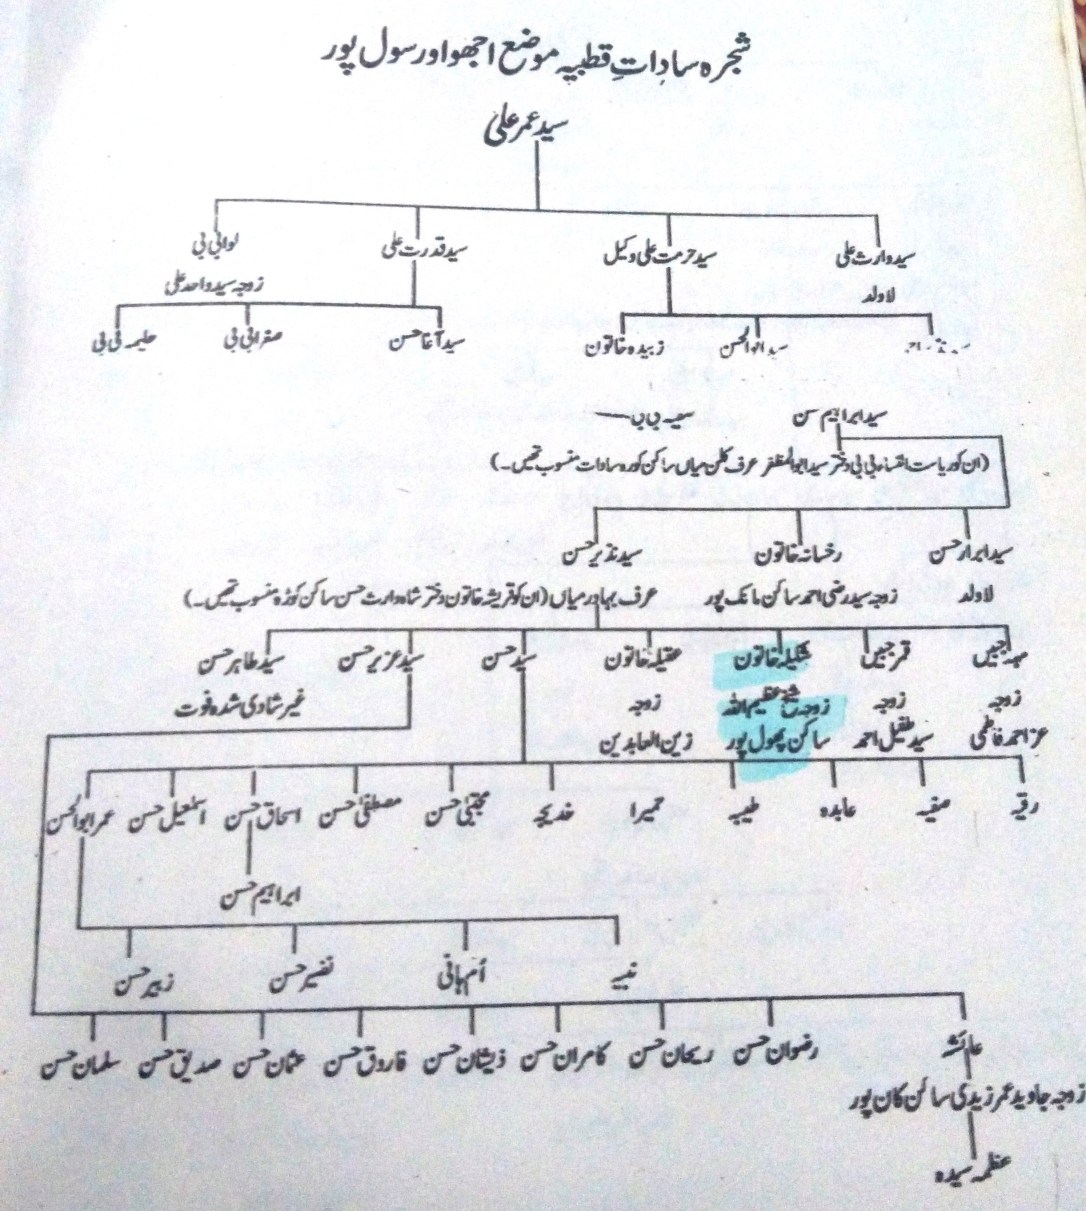 شجرہ ساداتِ قطبیہ موضع اجھوا ور سول پور
سید عمر علی
سید وارث علی سید حرمت علی وکیل سید قدرت علی نوابی بی
لاولد زوجہ سید واحد علی
سید ابوالحسن زبیدہ خاتون سید آغا حسن صغرابی بی حلیمہ بی بی
سید ابراہیم سن سعیہ بی بی
(ان کو ریاست النساء بی بی دختر سید ابوالمظفر عرف کلن میاں ساکن کورہ سادات منسوب تھیں۔)
سید ابرار حسن رخسانہ خاتون سید نذیر حسن
لاولد زوجہ سید رضی احمد ساکن مانک پور عرف بہادر میاں (ان کو قریشہ خاتون دختر شاہ وارث حسن ساکن کوڑہ منسوب تھیں۔)
مہ جبیں قمر جبیں شکیلہ خاتون عقیلہ خاتون سید حسن سید عزیر حسن سید طاہر حسن
زوجہ زوجہ زوجہ شیخ عظیم اللہ زوجہ غیر شادی شدہ فوت
عز احمد فاطمی سید طفیل احمد ساکن پھول پور زین العابدین
رقیہ صفیہ عابدہ طیبہ حمیرا خدیجہ مجتبیٰ حسن مصطفیٰ حسن اسحاق حسن اسمٰعیل حسن عمر ابوالحسن
ابراہیم حسن
نبیہ اُم ہانی نضیر حسن زبیر حسن
عائشہ رضوان حسن ریحان حسن کامران حسن ذیشان حسن فاروق حسن عثمان حسن صدیق حسن سلمان حسن
زوجہ جاوید عمر زیدی ساکن کان پور
عظمہ سیدہ